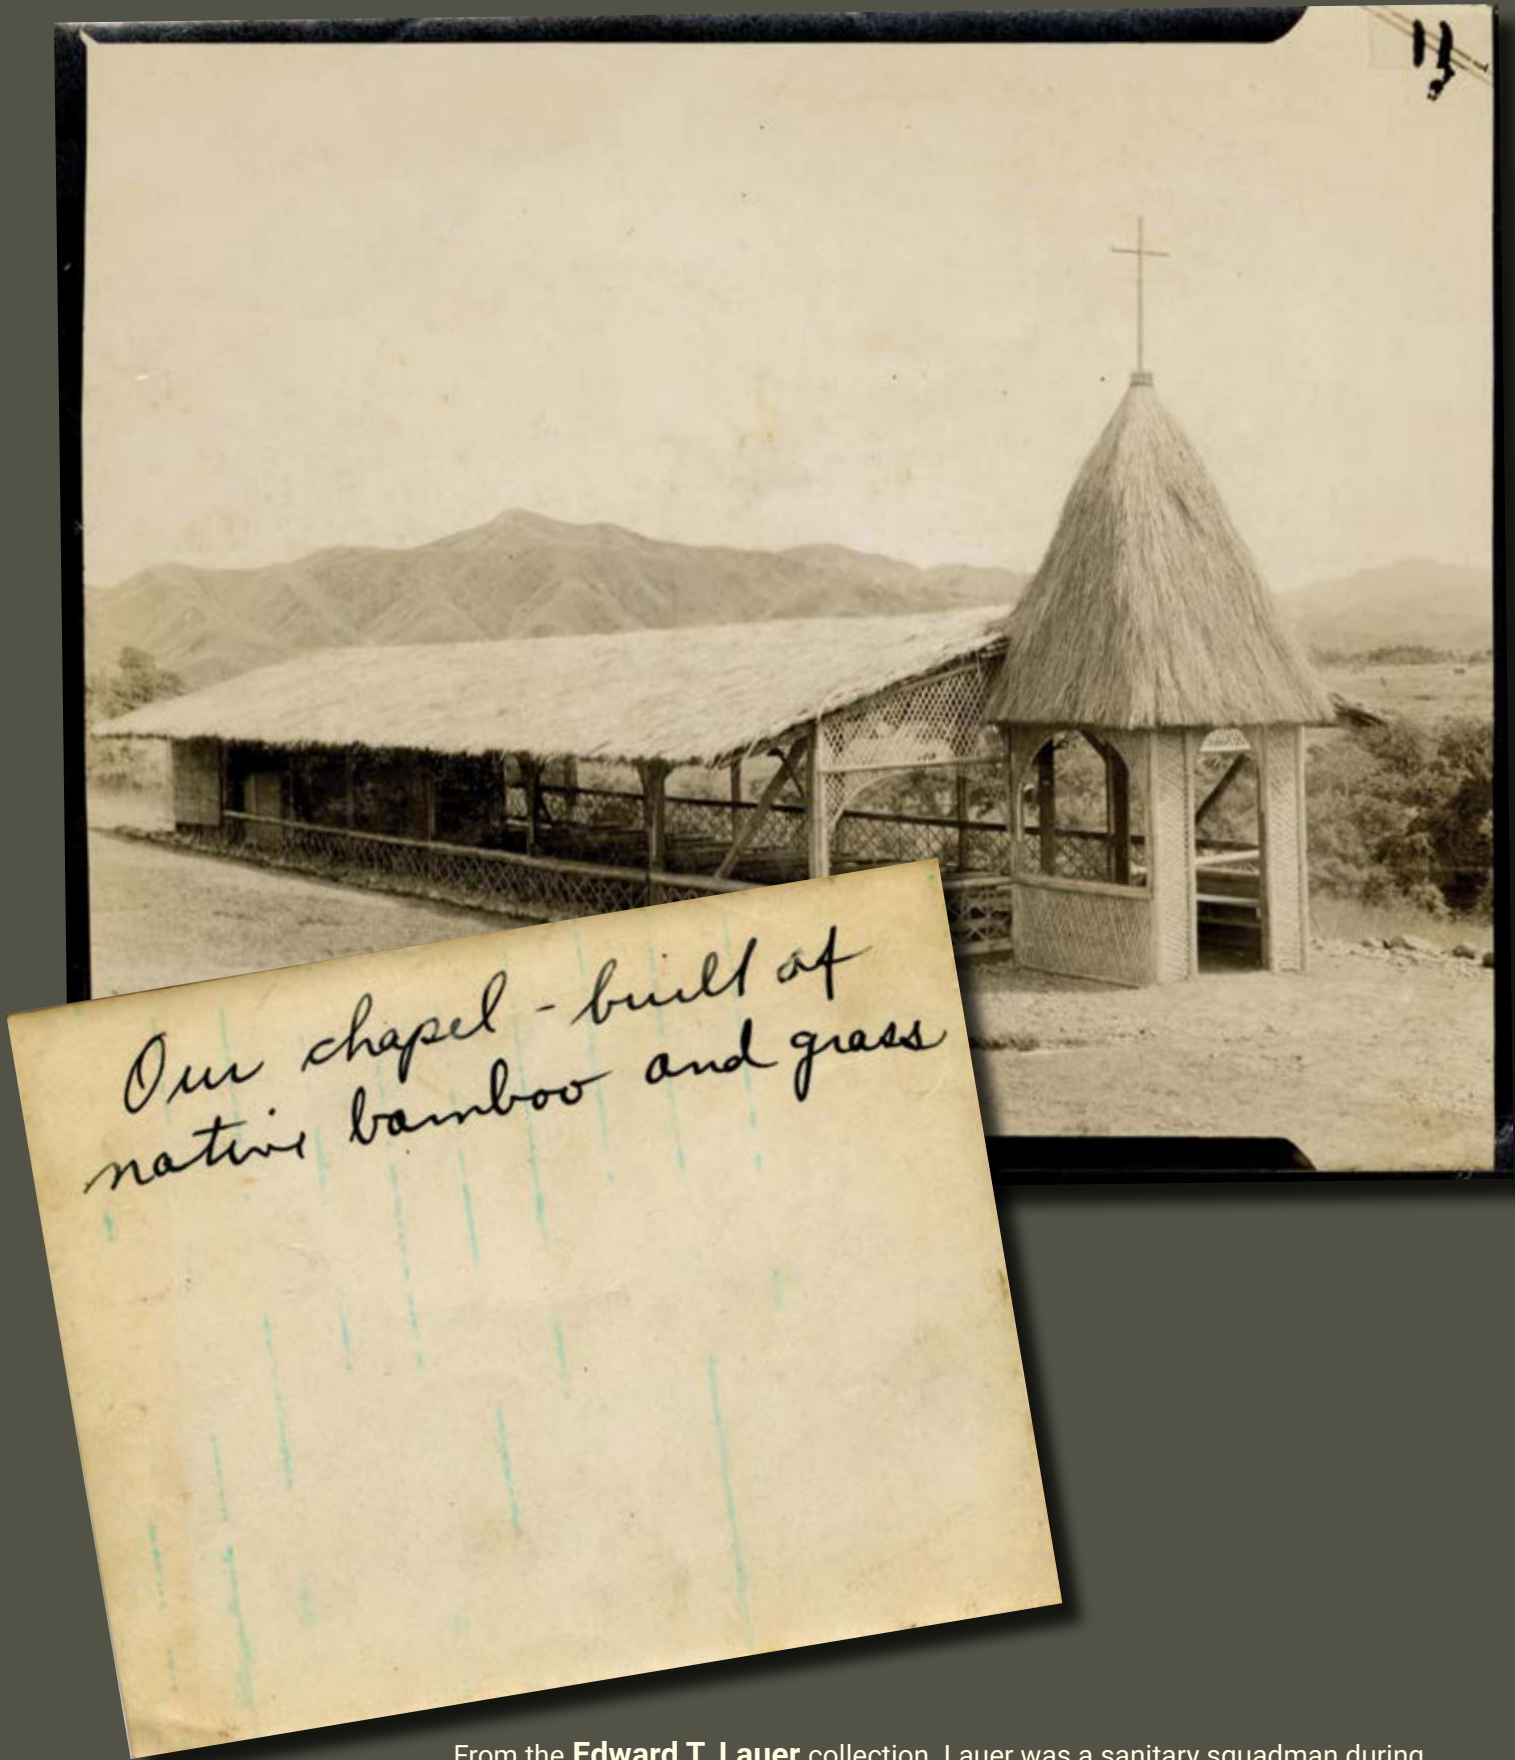 Our chapel - built of
native bamboo and grass
From the Edward T. Lauer collection. Lauer was a sanitary squadman during